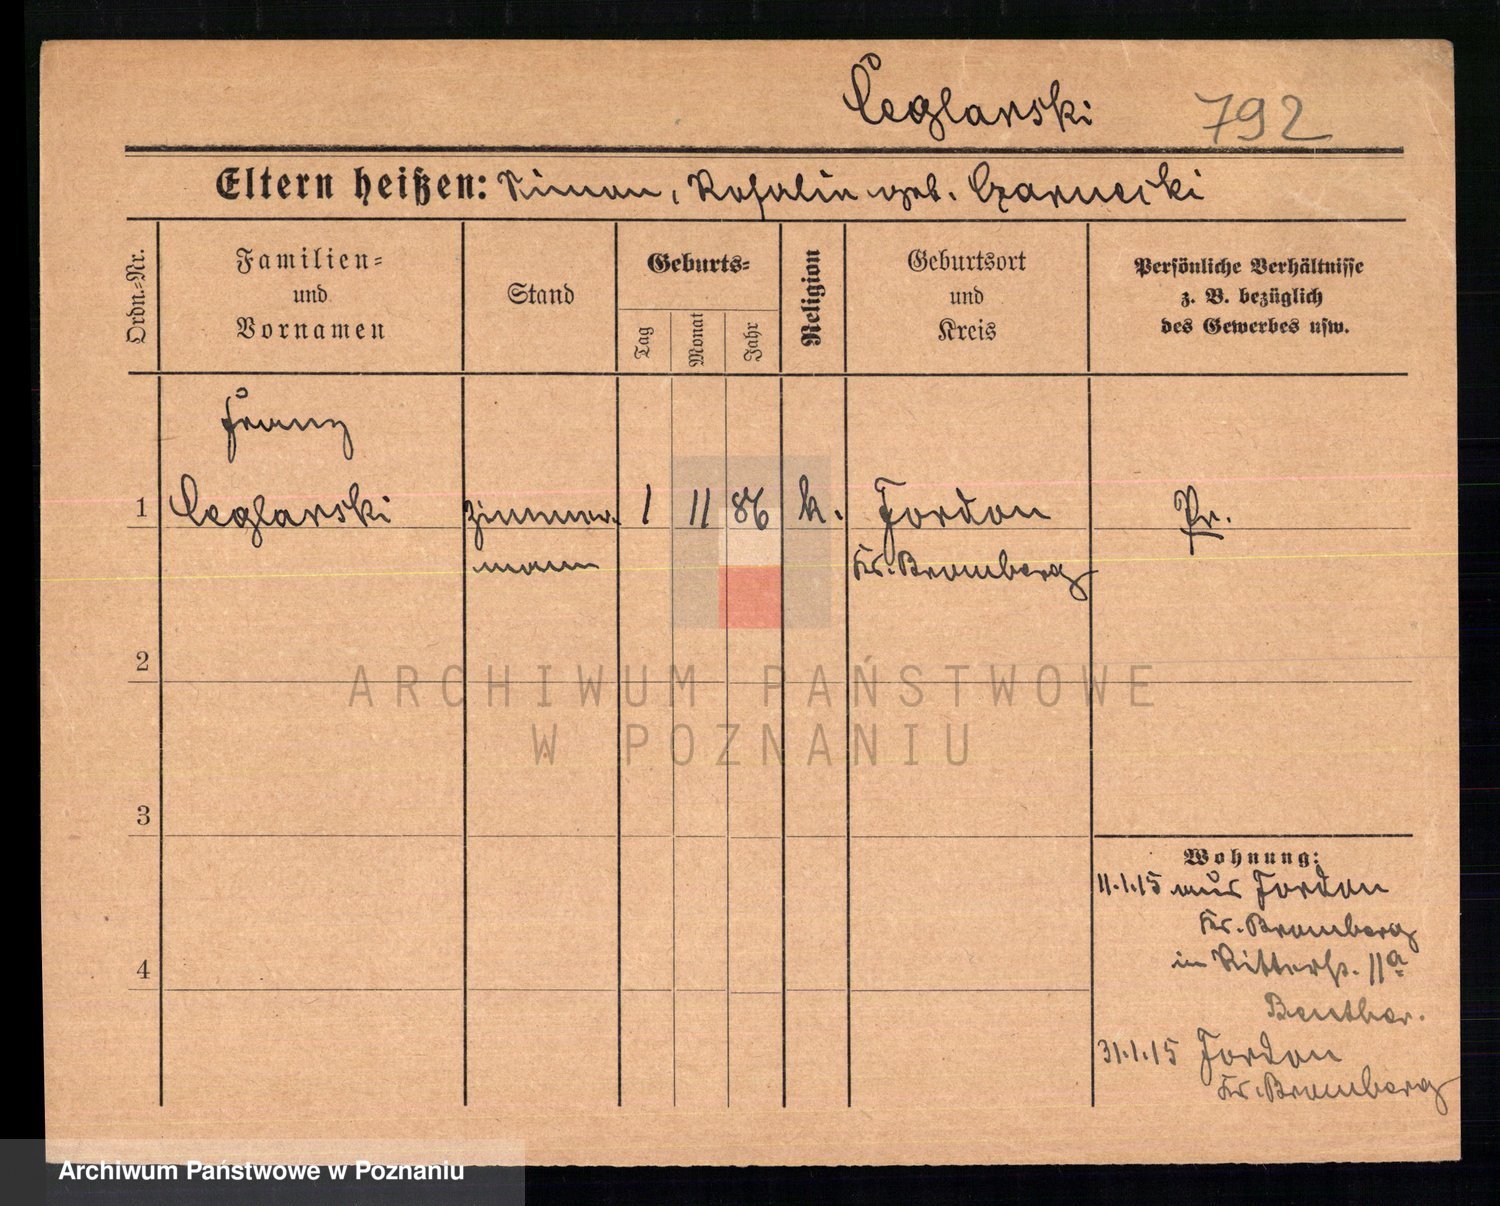 Ceglarski 792
Eltern heißen: Simon, Rosalie geb. Czarnecki
Ordn.-Nr.
Familien-
und
Vornamen
Stand
Geburts-
Tag
Monat
Jahr
Religion
Geburtsort
und
Kreis
Persönliche Verhältnisse
z. B. bezüglich
des Gewerbes usw.
Franz
1 Ceglarski Zimmer- 1 11 86 k. Fordon Pr.
mann Kr. Bromberg
2
3
4
Wohnung:
11.1.15 aus Fordon
Kr. Bromberg
in Ritterst. 11a
31.1.15 Fordon
Kr. Bromberg
ARCHIWUM PAŃSTWOWE
W POZNANIU
Archiwum Państwowe w Poznaniu